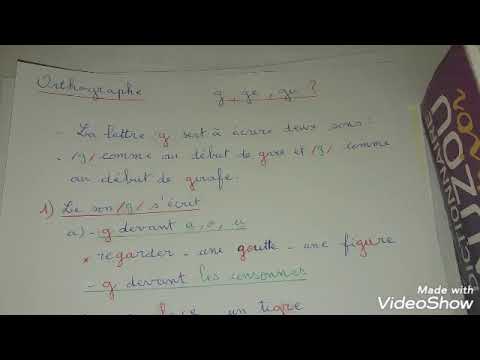 Orthographe g, ge, gu ?
- La lettre g sert à écrire deux sons :
- /g/ comme au début de gare et /ʒ/ comme
au début de girafe.
1) Le son /g/ s'écrit
a) - g devant a, o, u
* regarder - une goutte - une figure
- g devant les consonnes
un tigre
DICTIONNAIRE
Made with
VideoShow